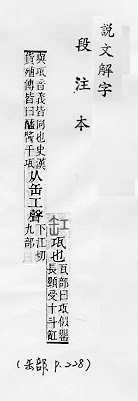 説文解字
段注本
缸 瓨也 瓦部曰瓨佀罌
長頸受十斗缸
與瓨音義皆同也史漢
貨殖傳皆曰醯醬千瓨 从缶工聲 下江切
九部
(缶部 P.228)